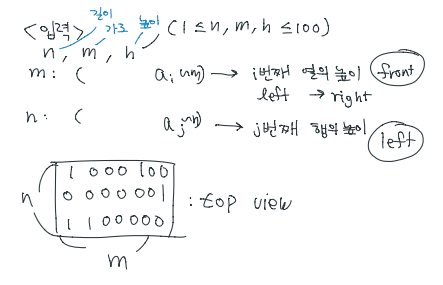 <입력> 길이 가로 높이
n, m, h (1 ≤ n, m, h ≤ 100)
m : ( a_i (~m) → i번째 열의 높이 front
left → right
n : ( a_j (~n) → j번째 행의 높이 left
1 0 0 0 1 0 0
0 0 0 0 0 0 1
1 1 0 0 0 0 0
n : top view
m